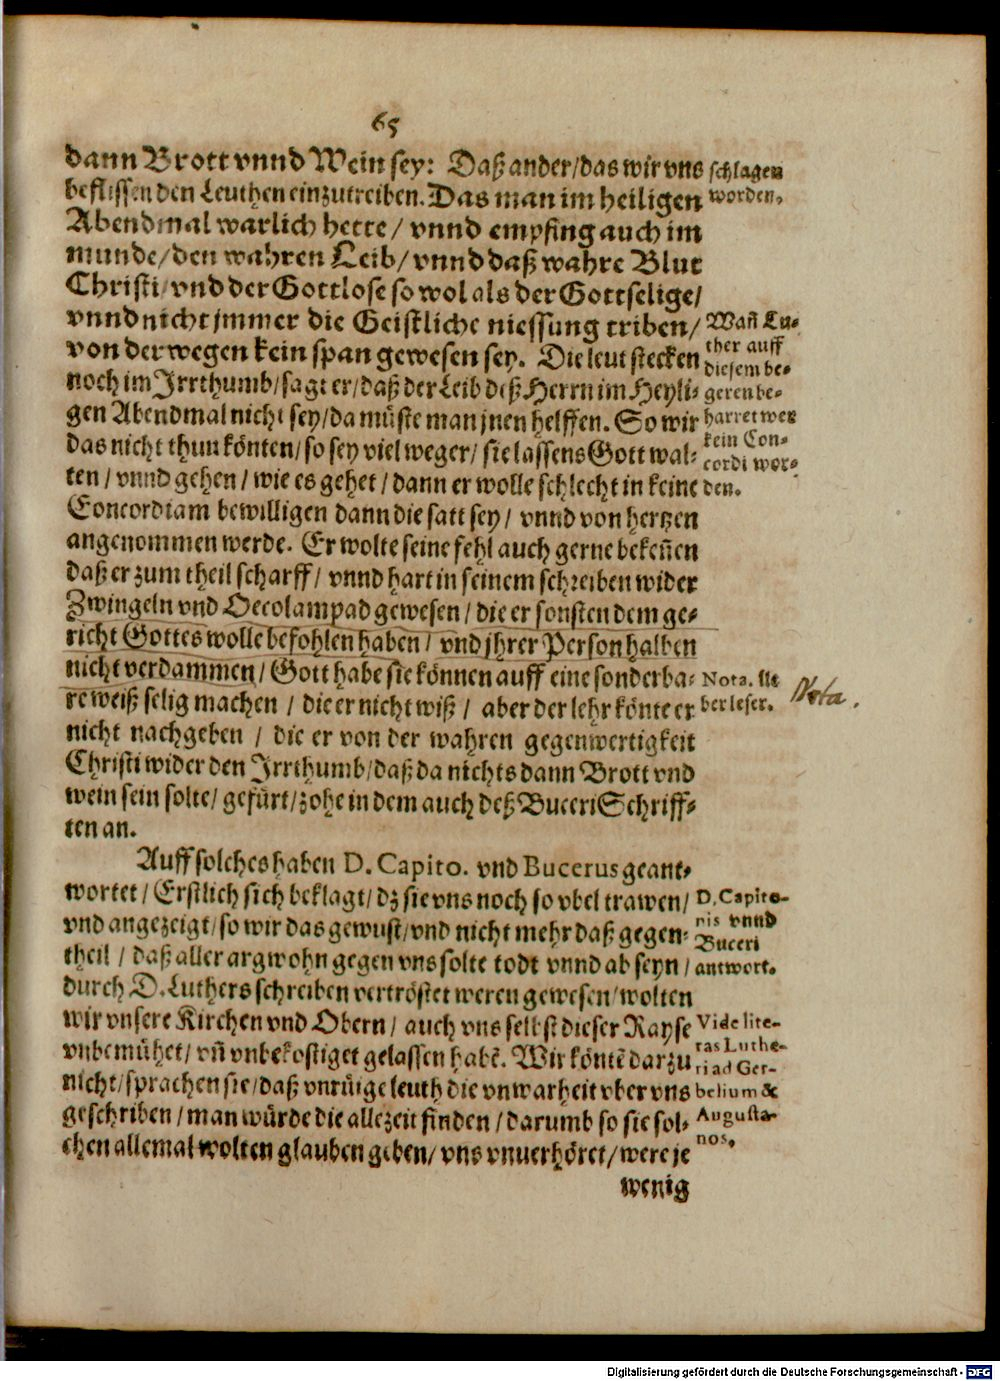 65
dann Brott vnnd Wein sey: Daß ander/das wir vns
beflissen den Leuthen einzutreiben. Das man im heiligen
Abendmal warlich hette/ vnnd empfing auch im
munde/den wahren Leib/vnnd daß wahre Blut
Christi/vnd der Gottlose so wol als der Gottselige/
vnnd nicht jmmer die Geistliche niessung triben/
von der wegen kein span gewesen sey. Die leut stecken
noch im Irrthumb/sagt er/daß der Leib deß Herrn im Heyli-
gen Abendmal nicht sey/da müste man jnen helffen. So wir
das nicht thun könten/so sey viel weger/sie lassens Gott wal-
ten/vnnd gehen/wie es gehet/dann er wolle schlecht in keine
Concordiam bewilligen dann die satt sey/ vnnd von hertzen
angenommen werde. Er wolte seine fehl auch gerne bekeñen
daß er zum theil scharff/ vnnd hart in seinem schreiben wider
Zwingeln vnd Oecolampad gewesen/die er sonsten dem ge-
richt Gottes wolle befohlen haben/ vnd jhrer Person halben
nicht verdammen/Gott habe sie können auff eine sonderba-
re weiß selig machen / die er nicht wiß/ aber der lehr könte er
nicht nachgeben / die er von der wahren gegenwertigkeit
Christi wider den Irrthumb/daß da nichts dann Brott vnd
wein sein solte/gefürt/zohe in dem auch deß Buceri Schriff-
ten an.
Auff solches haben D. Capito. vnd Bucerus geant-
wortet/Erstlich sich beklagt/dz sie vns noch so vbel trawen/
vnd angezeigt/so wir das gewust/vnd nicht mehr daß gegen-
theil / daß aller argwohn gegen vns solte todt vnnd ab seyn/
durch D. Luthers schreiben vertröstet weren gewesen/wolten
wir vnsere Kirchen vnd Obern/ auch vns selbst dieser Rayse
vnbemühet/vñ vnbekostiget gelassen habẽ. Wir köntẽ darzu
nicht/sprachen sie/daß vnrüige leuth die vnwarheit vber vns
geschriben/man würde die allezeit finden/darumb so sie sol-
chen allemal wolten glauben geben/vns vnuerhöret/were je
wenig
schlagen
worden.
Wañ Lu-
ther auff
diesem be-
geren be-
harret wer
kein Con-
cordi wor-
den.
Nota. li
ber leser.
Nota.
D. Capito-
nis vnnd
Buceri
antwort.
Vide lite-
ras Luthe-
ri ad Ger-
belium &
Augusta-
nos.
Digitalisierung gefördert durch die Deutsche Forschungsgemeinschaft - DFG